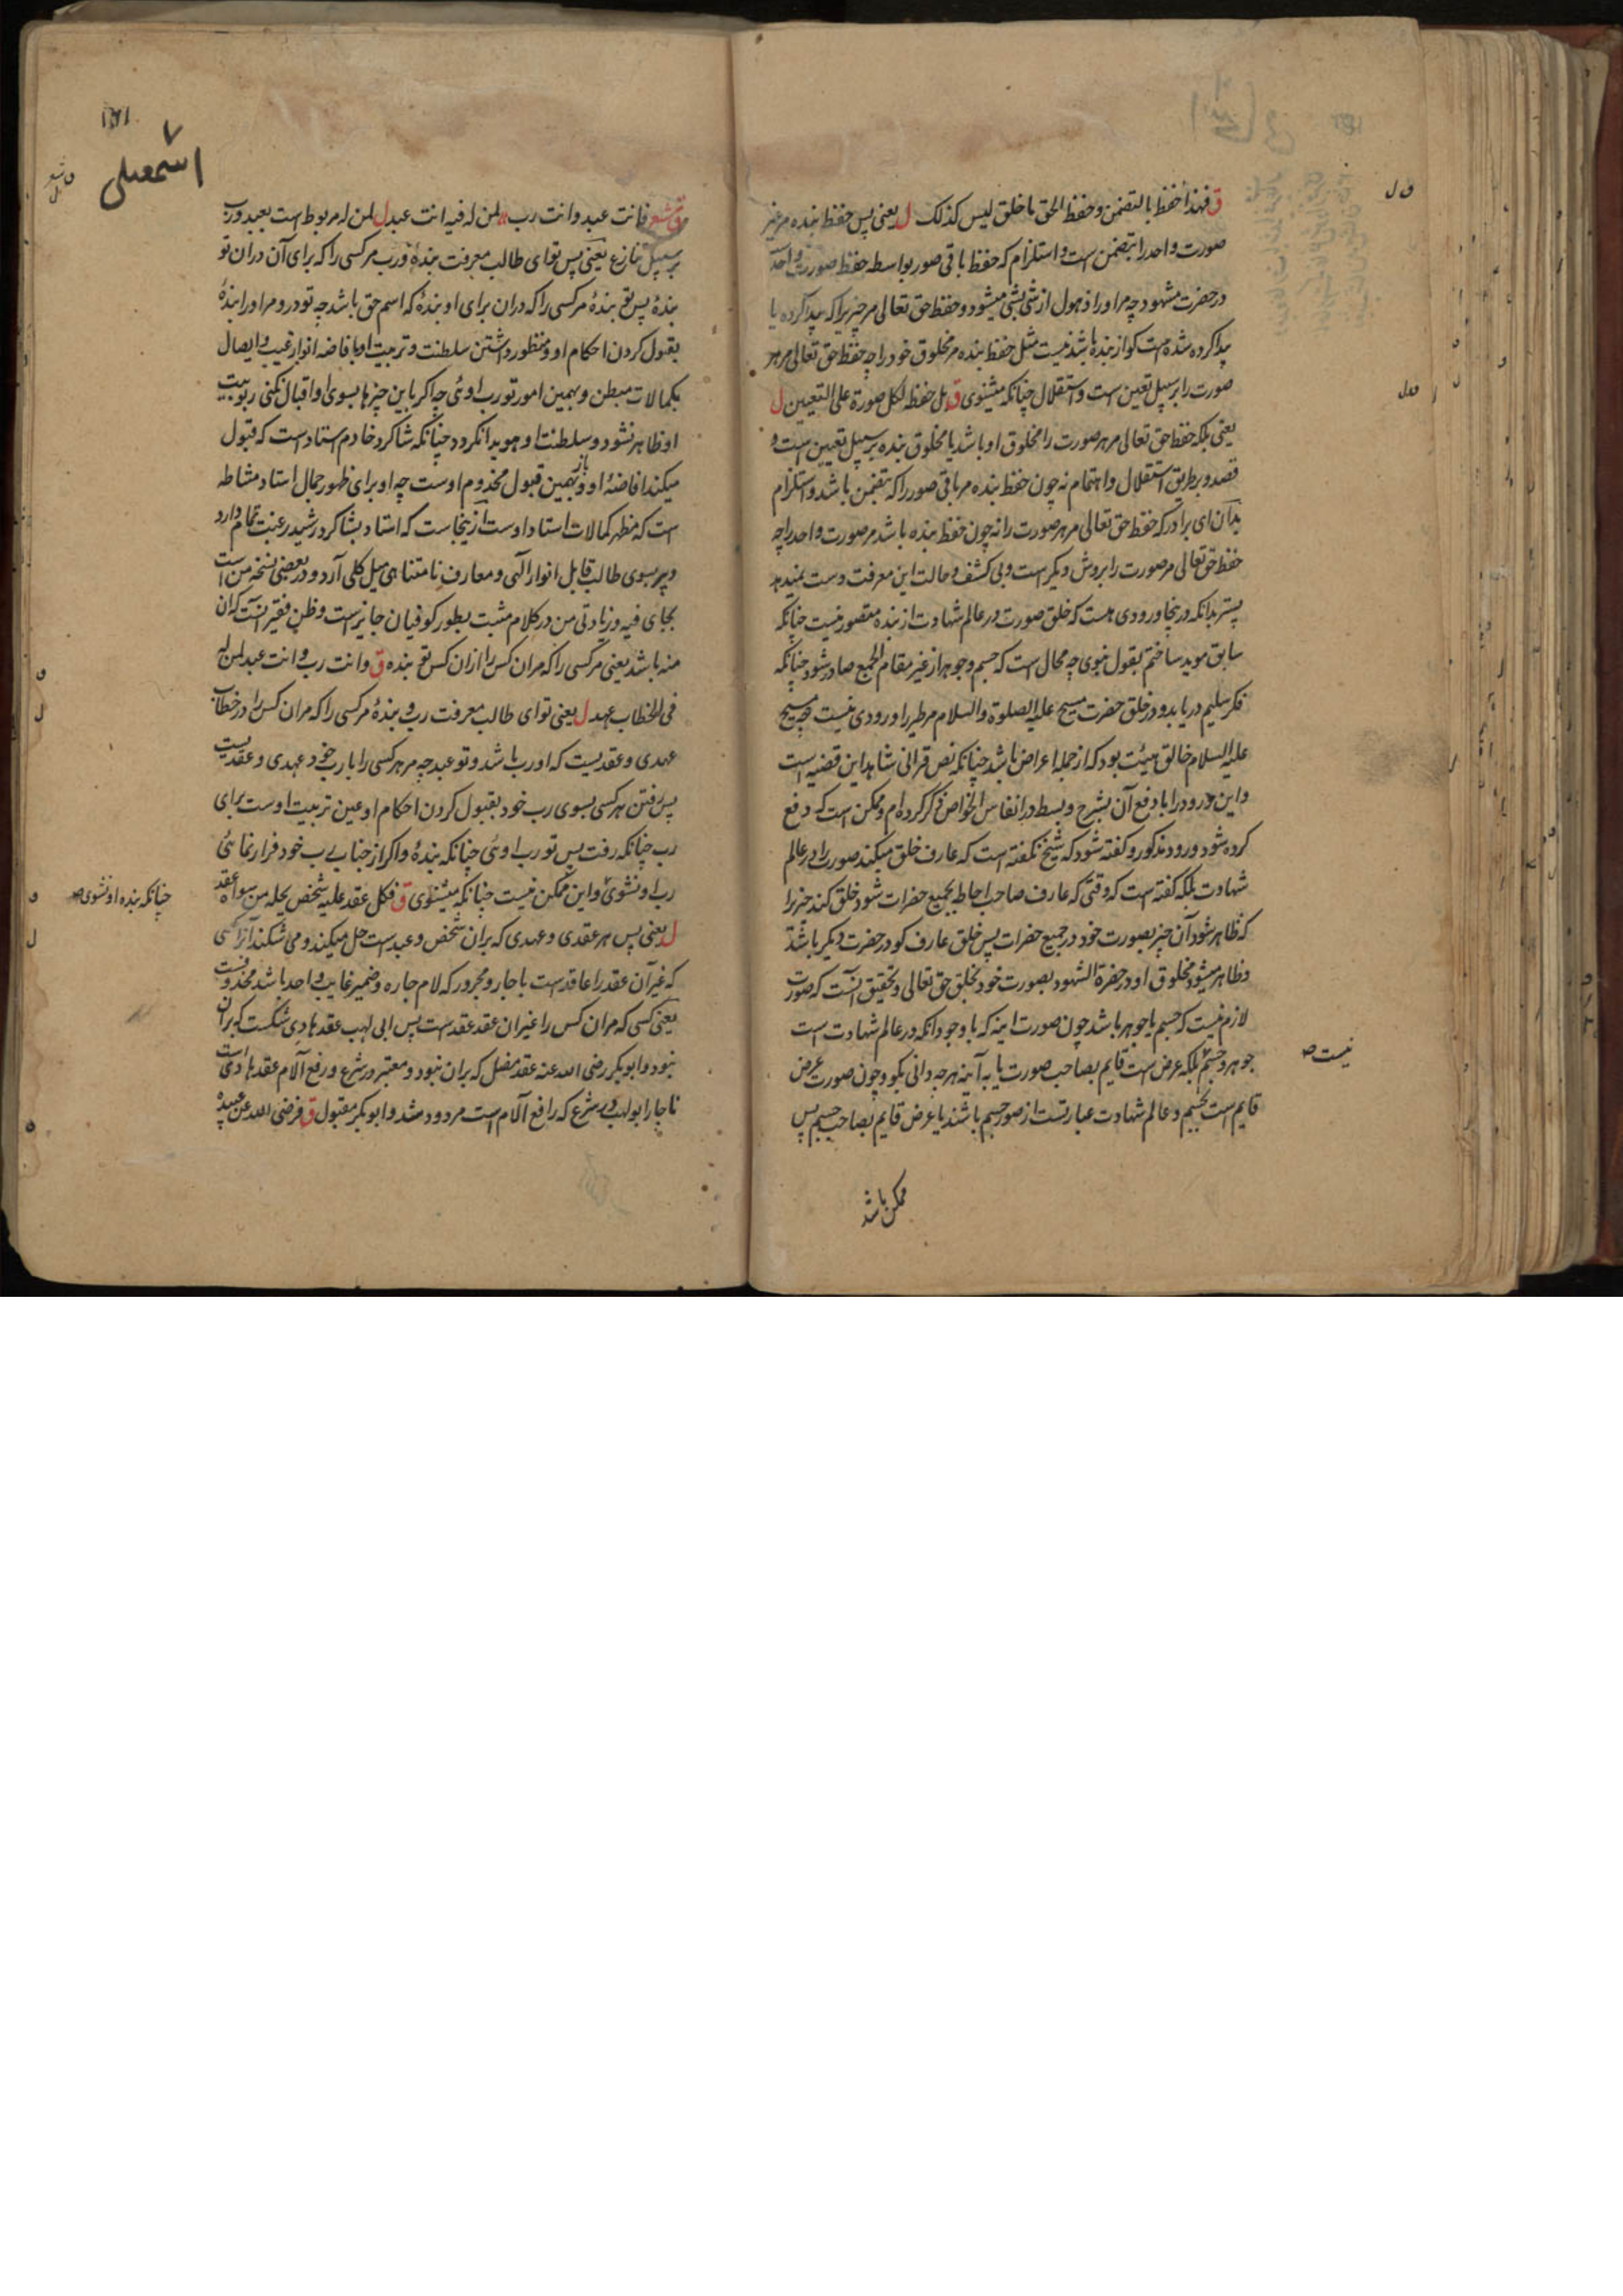 ق فهذا حفظ بالتضمن وحفظ الحق ما خلق ليس كذلك ل یعنی پس حفظ بنده مر غیر
صورت واحد را بتضمن است و استلزام که حفظ باقی صور بواسطه حفظ صورت واحد
در حضرت مشهود چه مر او را ذهول از شی بشی میشود و حفظ حق تعالی مر چیز یرا که پیدا کرده یا
پیدا کرده شده است کو از بنده باشد نیست مثل حفظ بنده مر مخلوق خود را چه حفظ حق تعالی مر هر
صورت را بر سبیل تعین است و استقلال چنانکه میشنوی ق بل حفظه لكل صورة على التعيين ل
یعنی بلکه حفظ حق تعالی مر هر صورت را مخلوق او باشد یا مخلوق بنده بر سبیل تعیین است و
قصد و بطریق استقلال و اهتمام نه چون حفظ بنده مر باقی صور را که بتضمن باشد و استلزام
بدان ای برادر که حفظ حق تعالی مر هر صورت را نه چون حفظ بنده باشد مر صورت واحد را چه
حفظ حق تعالی مر صورت را بروش دیگر است و بی کشف و حالت این معرفت دست نمیدهد
پستر بدانکه درینجا ورودی هست که خلق صورت در عالم شهادت از بنده مقصور نیست چنانکه
سابق موید ساختم بقول نبوی چه محال است که جسم و جوهر از غیر مقام الجمع صادر شود چنانکه
فکر سلیم دریابد و در خلق حضرت مسیح علیه الصلوة والسلام مر طیر را ورودی نیست چه مسیح
علیه السلام خالق هیئت بود که از جمله اعراض باشد چنانکه نص قرآنی شاهد این قضیه است
و این ورود را با دفع آن بشرح و بسط در انفاس الخواص ذکر کرده ام و ممکن است که دفع
کرده شود ورود مذکور و کفته شود که شیخ نکفته است که عارف خلق میکند صور را در عالم
شهادت بلکه کفته است که وقتی که عارف صاحب احاطه بجمیع حضرات شود خلق کند چیز را
که ظاهر شود آن چیز بصورت خود در جمیع حضرات پس خلق عارف کو در حضرت دیکر باشد
و ظاهر میشود مخلوق او در حضرة الشهود بصورت خود بخلق حق تعالی و تحقیق آنست که صورت
لازم نیست که جسم یا جوهر باشد چون صورت اینه که با وجود آنکه در عالم شهادت است
جوهر و جسم بلکه عرض است قایم بصاحب صورت یا به آینه هر چه دانی بکو و چون صورت عرض
قایم است بجسم و عالم شهادت عبارتست از صور جسم باشند یا عرض قایم بصاحب جسم پس
ممکن باشد
ق ل
ق ل
نیست صح
اسمعیلی
۷
ق شعر فانت عبد وانت رب لمن له فيه انت عبد ل لمن له مربوط است بعبد و رب
بر سبیل تنازع یعنی پس تو ای طالب معرفت بندهٔ و رب مر کسی را که برای آن دران تو
بندهٔ پس تو بندهٔ مر کسی را که دران برای او بندهٔ که اسم حق باشد چه تو در و مر او را بندهٔ
بقبول کردن احکام او و منظور داشتن سلطنت و تربیت او بافاضه انوار غیب و ایصال
بکمالات مبطن و بهمین امور تو رب اوئی چه اکر باین چیزها بسوی او اقبال نکنی ربوبیت
او ظاهر نشود و سلطنت او هویدا نکردد چنانکه شاکرد خادم استاد است که قبول
میکند افاضهٔ او و باز بهمین قبول مخدوم اوست چه او برای ظهور جمال استاد مشاطه
است که مظهر کمالات استاد اوست ازینجاست که استاد بشاکرد رشید رغبت تمام دارد
و پیر بسوی طالب قابل انوار الهی و معارف نامتناهی میل کلی آرد و در بعضی نسخه من است
بجای فیه و زیادتی من در کلام مثبت بطور کوفیان جایز است و ظن فقیر آنست که آن
منه باشد یعنی مر کسی را که مر ان کس را از ان کس تو بنده ق وانت رب وانت عبد لمن له
فى الخطاب عهد ل یعنی تو ای طالب معرفت رب و بندهٔ مر کسی را که مر ان کس را در خطاب
عهدی و عقدیست که او رب باشد و تو عبد چه مر هر کسی را با رب خود عهدی و عقدیست
پس رفتن هر کسی بسوی رب خود بقبول کردن احکام او عین تربیت اوست برای
رب چنانکه رفت پس تو رب اوئی چنانکه بندهٔ و اکر از جناب رب خود فرار نمائی
رب او نشوی و این ممکن نیست چنانکه میشنوی ق فكل عقد عليه شخص يحله من سواه عقد
ل یعنی پس هر عقدی و عهدی که بران شخص و عبد است حل میکند و می شکند آنرا کسی
که غیر آن عقد را عاقد است یا جار و مجرور که لام جاره و ضمیر غایب واحد باشد محذوفست
یعنی کسی که مر ان کس را غیر ان عقد عقد است پس ابی لهب عقد هادی شکست که بران
نبود و ابوبکر رضی الله عنه عقد مضل که بران نبود و معتبر در شرع و رفع آلام عقد هادی است
ناچار ابولهب در شرع که رافع آلام است مردود شد و ابوبکر مقبول ق فرضى الله عن عبيده
چنانکه بنده او نشوی صح